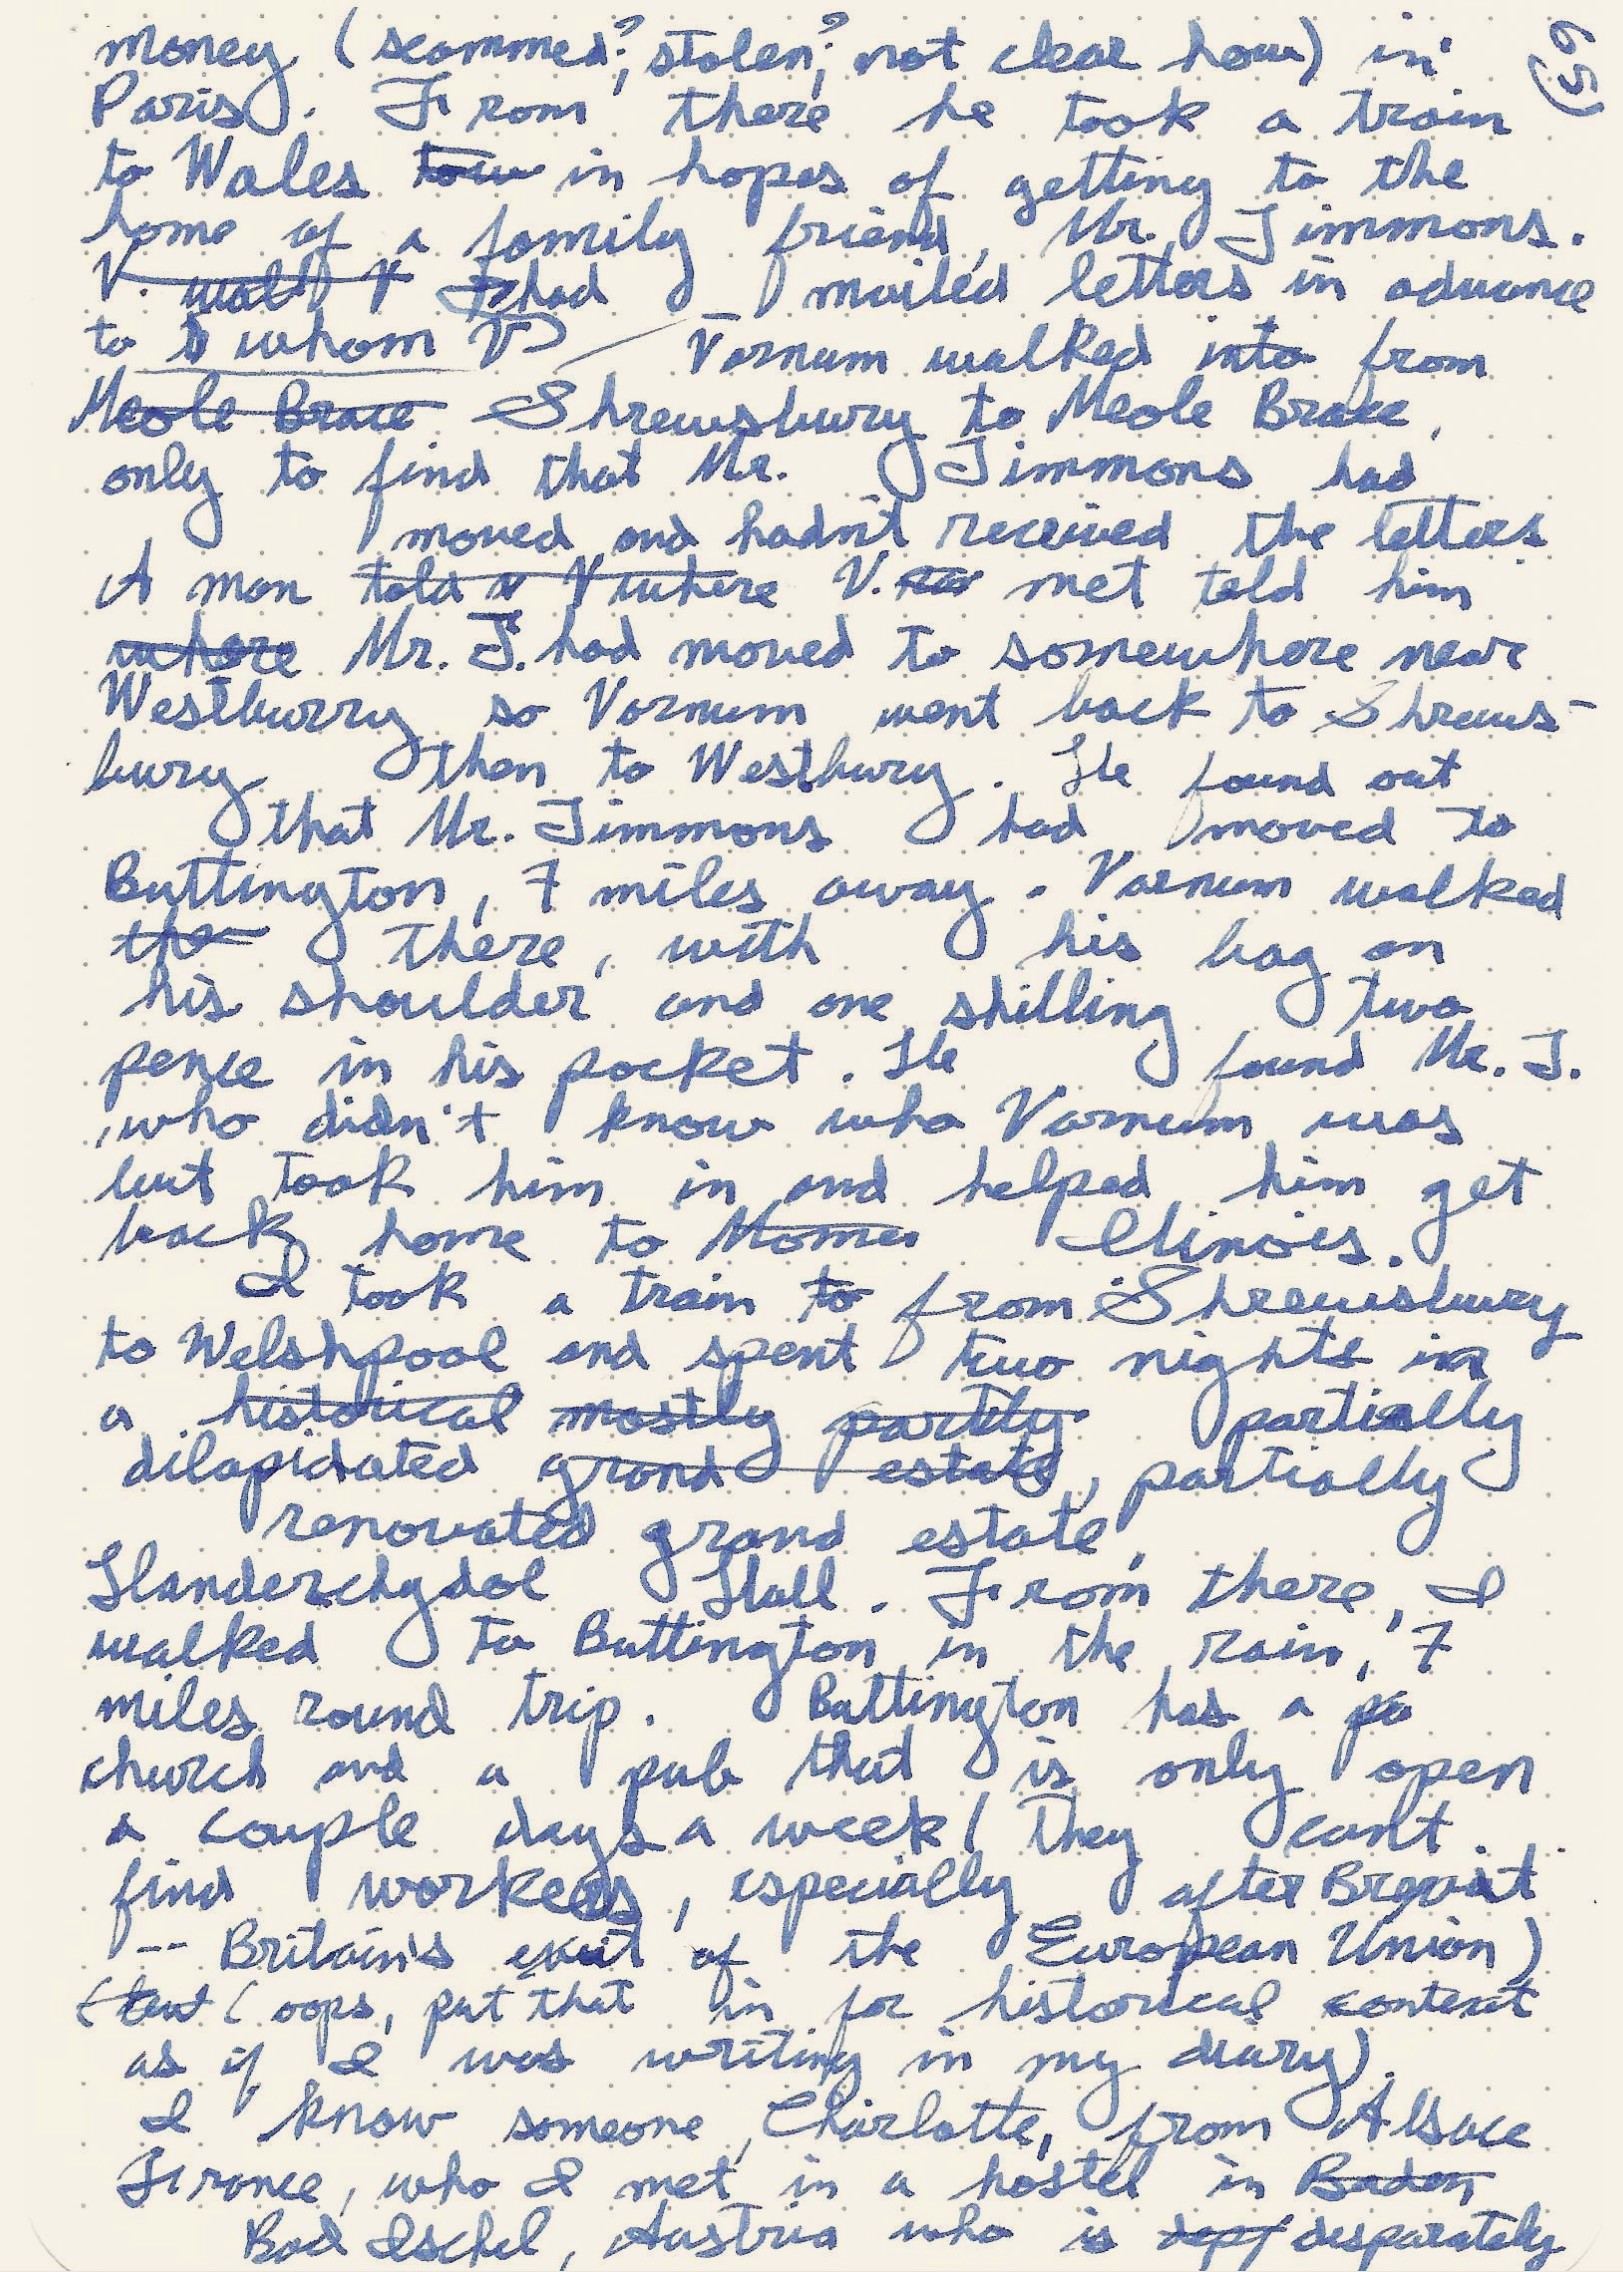 money (scammed?, stolen?, not clear how) in
(59)
Paris). From there he took a train
to Wales tow in hopes of getting to the
home of a family friend, Mr. Timmons.
V. walk V had mailed letters in advance
to whom V Varnum walked into from
Meole Brace Shrewsbury to Meole Brake,
only to find that Mr. Timmons had
moved and hadn't received the letters
A man told V where V. met told him
where Mr. T. had moved to somewhere near
Westburry so Varnum went back to Shrews-
bury then to Westbury. He found out
that Mr. Timmons had moved to
Buttington, 7 miles away. Varnum walked
the there, with his bag on
his shoulder and one shilling two
pence in his pocket. He found Mr. T.
, who didn't know who Varnum was
but took him in and helped him get
back home to Mome Illinois.
I took a train to from Shrewsbury
to Welshpool and spent two nights in
a historical mostly partly partially
dilapidated grand estate, partially
renovated grand estate,
Llanderchydol Hall. From there, I
walked to Buttington in the rain, 7
miles round trip. Buttington has a pa
church and a pub that is only open
a couple days a week! They cant
find workers, especially after Brexit
-- Britain's exit of the European Union)
(but (oops, put that in for historical context
as if I was writing in my diary).
I know someone, Charlotte, from Alsace
France, who I met in a hostel in Baden
Bad Ischel, Austria who is dep desparately